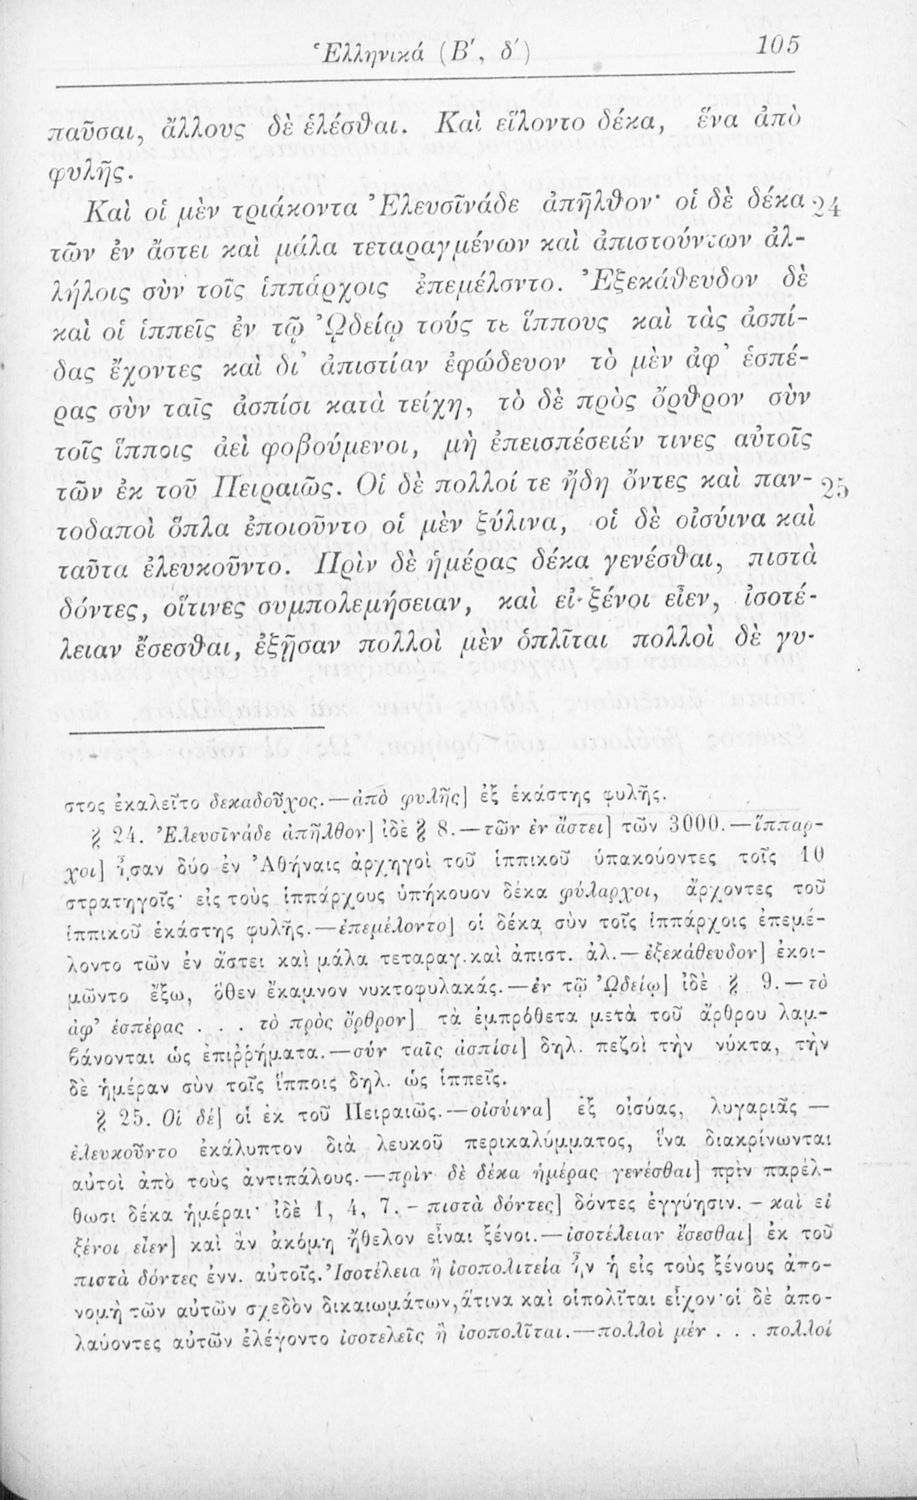 Ἑλληνικά (Β΄, δ΄) 105
παῦσαι, ἄλλους δὲ ἑλέσθαι. Καὶ εἵλοντο δέκα, ἕνα ἀπὸ
φυλῆς.
Καὶ οἱ μὲν τριάκοντα Ἐλευσῖνάδε ἀπῆλθον· οἱ δὲ δέκα 24
τῶν ἐν ἄστει καὶ μάλα τεταραγμένων καὶ ἀπιστούντων ἀλ-
λήλοις σὺν τοῖς ἱππάρχοις ἐπεμέλοντο. Ἐξεκάθευδον δὲ
καὶ οἱ ἱππεῖς ἐν τῷ Ὠδείῳ τούς τε ἵππους καὶ τὰς ἀσπί-
δας ἔχοντες καὶ δι' ἀπιστίαν ἐφώδευον τὸ μὲν ἀφ' ἑσπέ-
ρας σὺν ταῖς ἀσπίσι κατὰ τείχη, τὸ δὲ πρὸς ὄρθρον σὺν
τοῖς ἵπποις ἀεὶ φοβούμενοι, μὴ ἐπεισπέσειέν τινες αὐτοῖς
τῶν ἐκ τοῦ Πειραιῶς. Οἱ δὲ πολλοί τε ἤδη ὄντες καὶ παν- 25
τοδαποὶ ὅπλα ἐποιοῦντο οἱ μὲν ξύλινα, οἱ δὲ οἰσύινα καὶ
ταῦτα ἐλευκοῦντο. Πρὶν δὲ ἡμέρας δέκα γενέσθαι, πιστὰ
δόντες, οἵτινες συμπολεμήσειαν, καὶ εἰ ξένοι εἶεν, ἰσοτέ-
λειαν ἔσεσθαι, ἐξῇσαν πολλοὶ μὲν ὁπλῖται πολλοὶ δὲ γυ-
στος ἐκαλεῖτο δεκαδοῦχος.—ἀπὸ φυλῆς] ἐξ ἑκάστης φυλῆς.
§ 24. Ἐλευσῖνάδε ἀπῆλθον] ἰδὲ § 8.—τῶν ἐν ἄστει] τῶν 3000.—ἵππαρ-
χοι] ἦσαν δύο ἐν Ἀθήναις ἀρχηγοὶ τοῦ ἱππικοῦ ὑπακούοντες τοῖς 10
στρατηγοῖς· εἰς τοὺς ἱππάρχους ὑπήκουον δέκα φύλαρχοι, ἄρχοντες τοῦ
ἱππικοῦ ἑκάστης φυλῆς.—ἐπεμέλοντο] οἱ δέκα σὺν τοῖς ἱππάρχοις ἐπεμέ-
λοντο τῶν ἐν ἄστει καὶ μάλα τεταραγ. καὶ ἀπιστ. ἀλ.—ἐξεκάθευδον] ἐκοι-
μῶντο ἔξω, ὅθεν ἔκαμνον νυκτοφυλακάς.—ἐν τῷ Ὠδείῳ] ἰδὲ § 9.—τὸ
ἀφ' ἑσπέρας . . . τὸ πρὸς ὄρθρον] τὰ ἐμπρόθετα μετὰ τοῦ ἄρθρου λαμ-
βάνονται ὡς ἐπιῤῥήματα.—σὺν ταῖς ἀσπίσι] δηλ. πεζοὶ τὴν νύκτα, τὴν
δὲ ἡμέραν σὺν τοῖς ἵπποις δηλ. ὡς ἱππεῖς.
§ 25. Οἱ δὲ] οἱ ἐκ τοῦ Πειραιῶς.—οἰσύινα] ἐξ οἰσύας, λυγαριᾶς —
ἐλευκοῦντο ἐκάλυπτον διὰ λευκοῦ περικαλύμματος, ἵνα διακρίνωνται
αὐτοὶ ἀπὸ τοὺς ἀντιπάλους.—πρὶν δὲ δέκα ἡμέρας γενέσθαι] πρὶν παρέλ-
θωσι δέκα ἡμέραι· ἰδὲ 1, 4, 7.- πιστὰ δόντες] δόντες ἐγγύησιν. - καὶ εἰ
ξένοι εἶεν] καὶ ἂν ἀκόμη ἤθελον εἶναι ξένοι.—ἰσοτέλειαν ἔσεσθαι] ἐκ τοῦ
πιστὰ δόντες ἐνν. αὐτοῖς. Ἰσοτέλεια ἢ ἰσοπολιτεία ἦν ἡ εἰς τοὺς ξένους ἀπο-
νομὴ τῶν αὐτῶν σχεδὸν δικαιωμάτων, ἅτινα καὶ οἱ πολῖται εἶχον· οἱ δὲ ἀπο-
λαύοντες αὐτῶν ἐλέγοντο ἰσοτελεῖς ἢ ἰσοπολῖται.—πολλοὶ μὲν . . . πολλοί